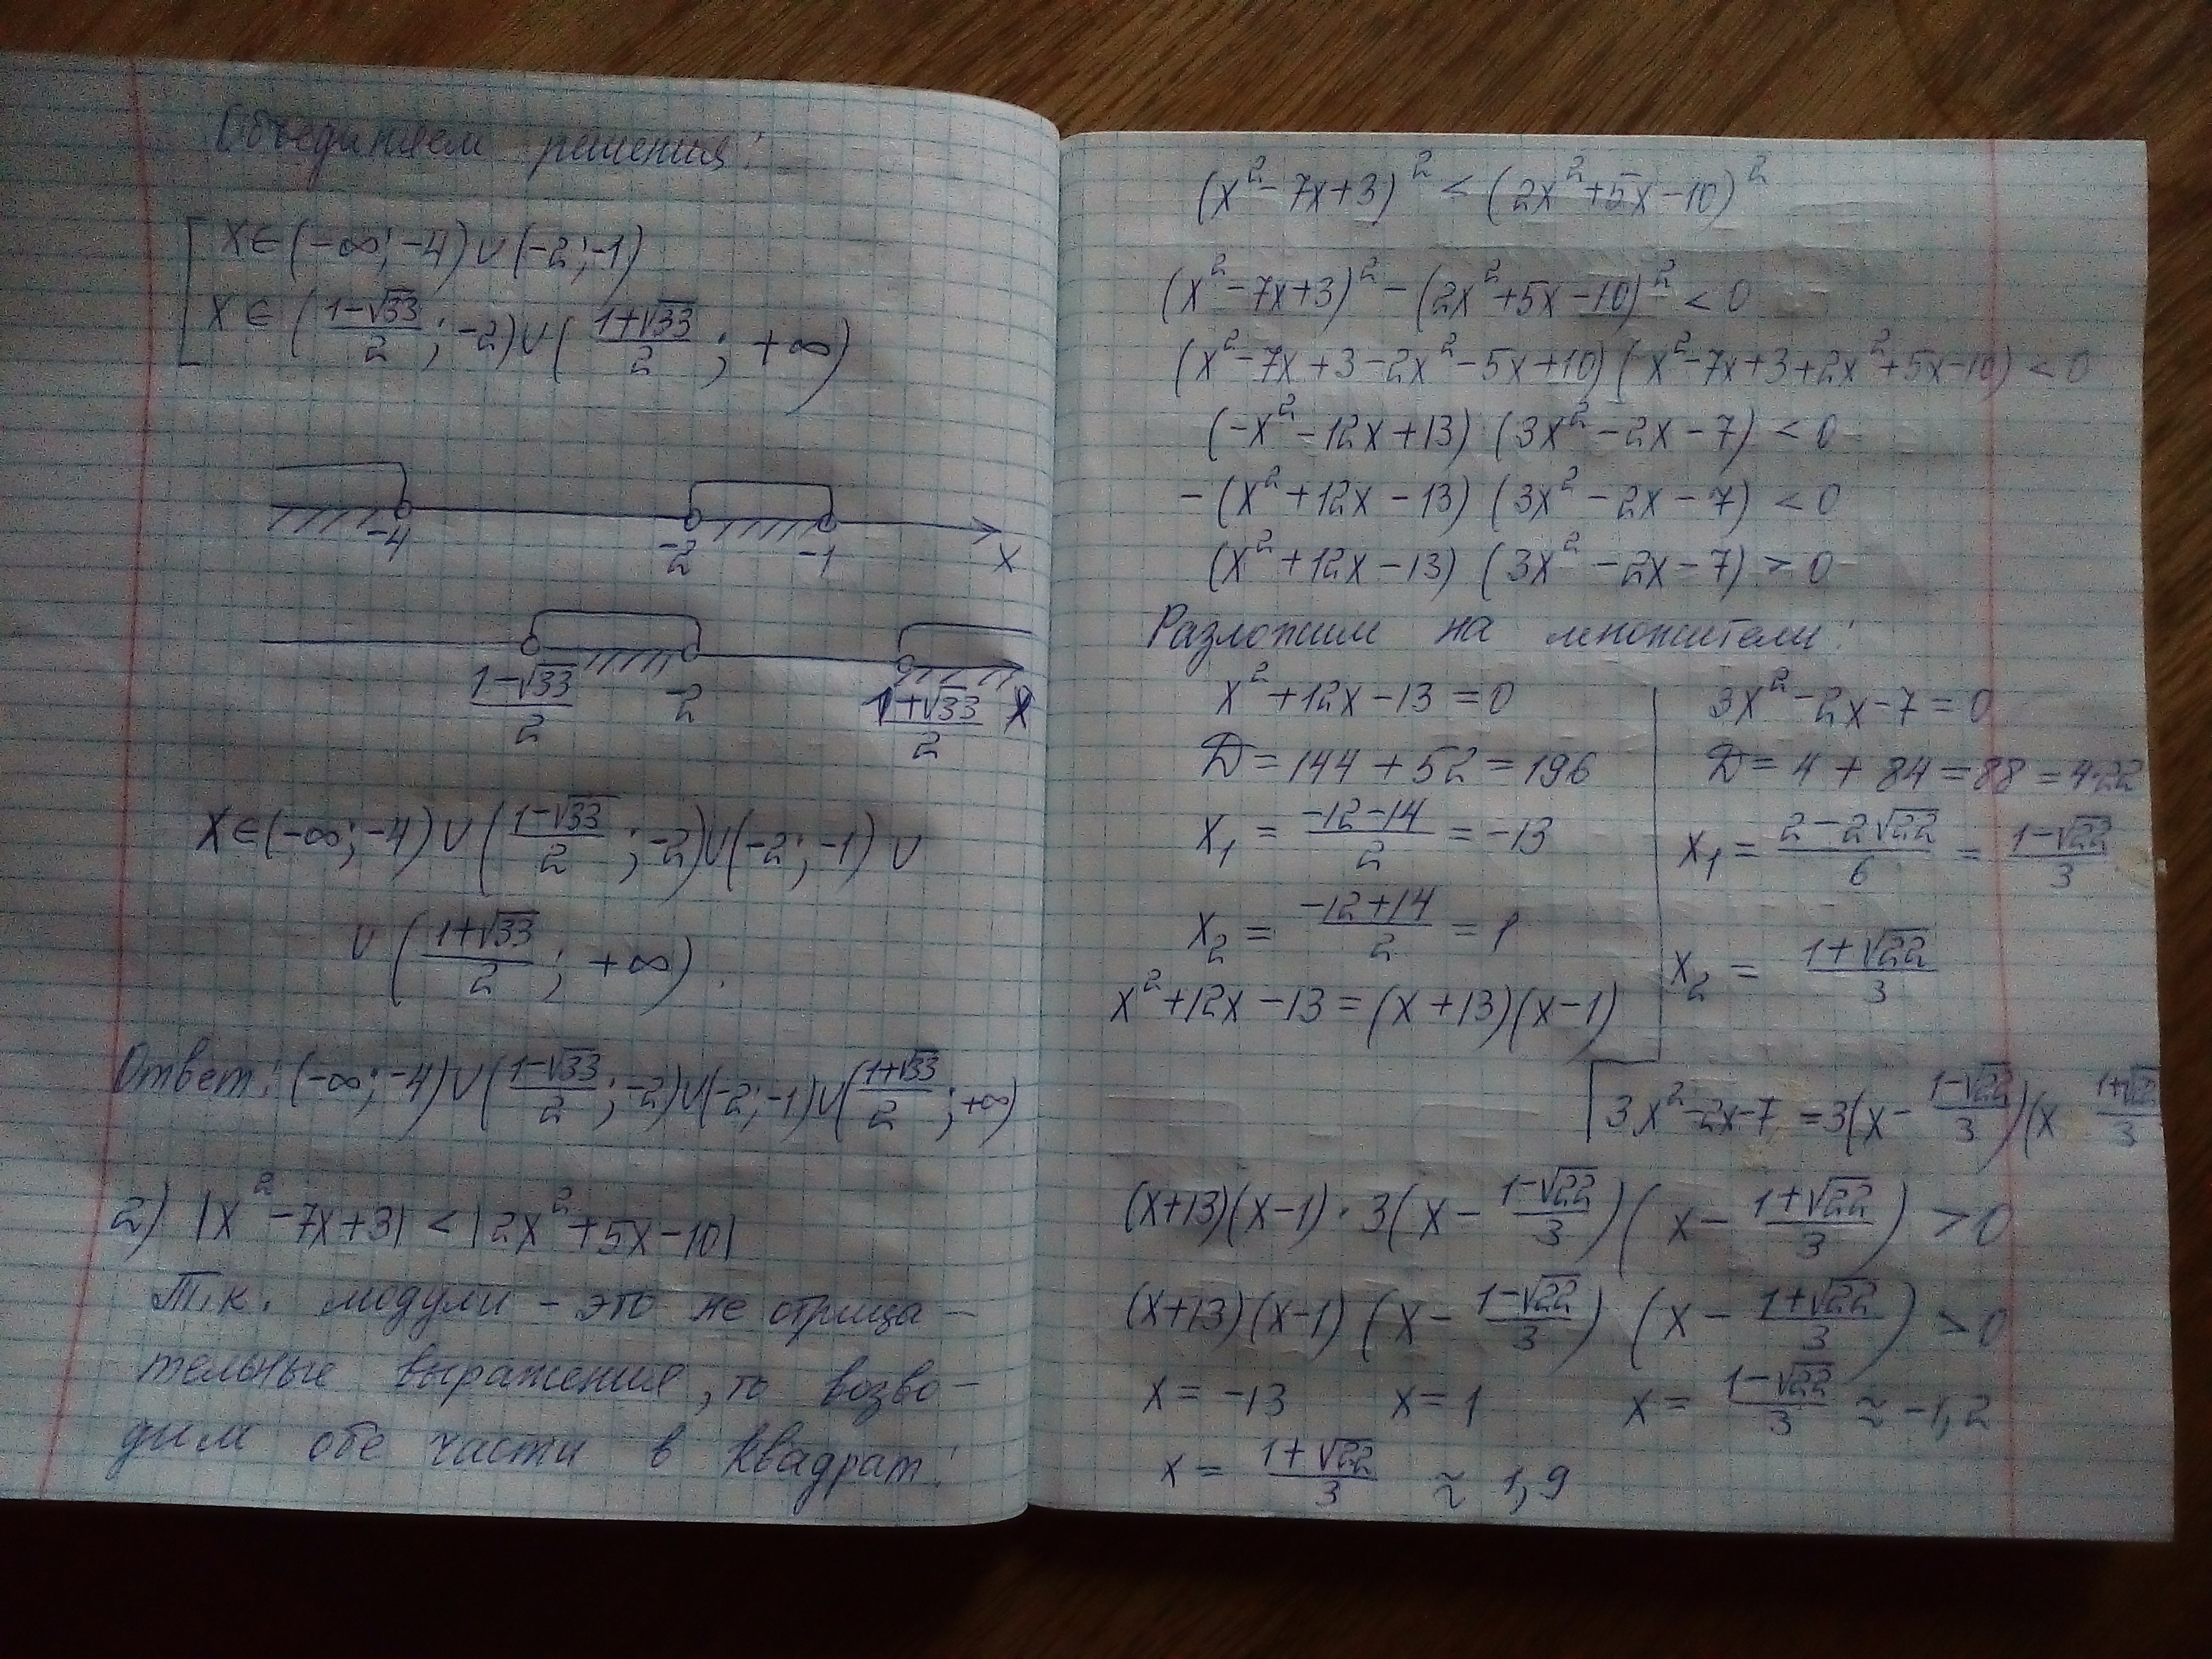 Объединяем решения:
[ x ∈ (-∞; -4) ∪ (-2; -1)
x ∈ ((1-√33)/2; -2) ∪ ((1+√33)/2; +∞)
-4 -2 -1 x
(1-√33)/2 -2 (1+√33)/2 x
x ∈ (-∞; -4) ∪ ((1-√33)/2; -2) ∪ (-2; -1) ∪
∪ ((1+√33)/2; +∞).
Ответ: (-∞; -4) ∪ ((1-√33)/2; -2) ∪ (-2; -1) ∪ ((1+√33)/2; +∞)
2) |x² - 7x + 3| < |2x² + 5x - 10|
Т.к. модули - это не отрица-
тельные выражения, то возво-
дим обе части в квадрат:
(x² - 7x + 3)² < (2x² + 5x - 10)²
(x² - 7x + 3)² - (2x² + 5x - 10)² < 0
(x² - 7x + 3 - 2x² - 5x + 10)(x² - 7x + 3 + 2x² + 5x - 10) < 0
(-x² - 12x + 13)(3x² - 2x - 7) < 0
-(x² + 12x - 13)(3x² - 2x - 7) < 0
(x² + 12x - 13)(3x² - 2x - 7) > 0
Разложим на множители:
x² + 12x - 13 = 0
D = 144 + 52 = 196
x₁ = (-12-14)/2 = -13
x₂ = (-12+14)/2 = 1
x² + 12x - 13 = (x + 13)(x - 1)
3x² - 2x - 7 = 0
D = 4 + 84 = 88 = 4·22
x₁ = (2-2√22)/6 = (1-√22)/3
x₂ = (1+√22)/3
3x² - 2x - 7 = 3(x - (1-√22)/3)(x (1+√22)/3
(x+13)(x-1) · 3(x - (1-√22)/3)(x - (1+√22)/3) > 0
(x+13)(x-1)(x - (1-√22)/3)(x - (1+√22)/3) > 0
x = -13 x = 1 x = (1-√22)/3 ≈ -1,2
x = (1+√22)/3 ≈ 1,9